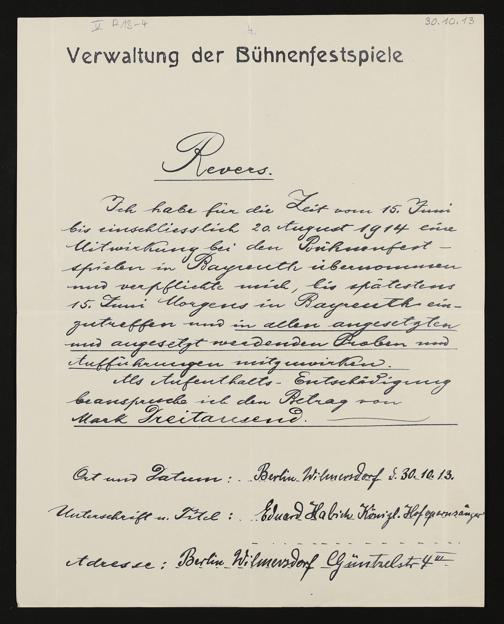 V R 13-4
4.
30.10.13
Verwaltung der Bühnenfestspiele
Revers.
Ich habe für die Zeit vom 15. Juni
bis einschliesslich 20. August 1914 eine
Mitwirkung bei den Bühnenfest-
spielen in Bayreuth übernommen
und verpflichte mich, bis spätestens
15. Juni Morgens in Bayreuth ein-
zutreffen und in allen angesetzten
und angesetzt werdenden Proben und
Aufführungen mitzuwirken.
Als Aufenthalts-Entschädigung
beanspruche ich den Betrag von
Mark Dreitausend.
Ort und Datum: Berlin. Wilmersdorf d. 30.10.13.
Unterschrift u. Titel: Eduard Habich Königl. Hofopernsänger
Adresse: Berlin. Wilmersdorf Güntzelstr 4 III